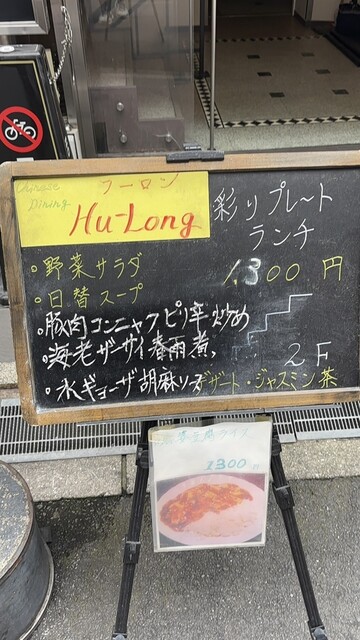 Chinese
Dining
フーロン
Hu-Long
彩りプレート
ランチ
・野菜サラダ
1,300円
・日替スープ
・豚肉コンニャクピリ辛炒め
・海老ザーサイ春雨煮、
2F
・水ギョーザ胡麻ソース
デザート・ジャスミン茶
1300円